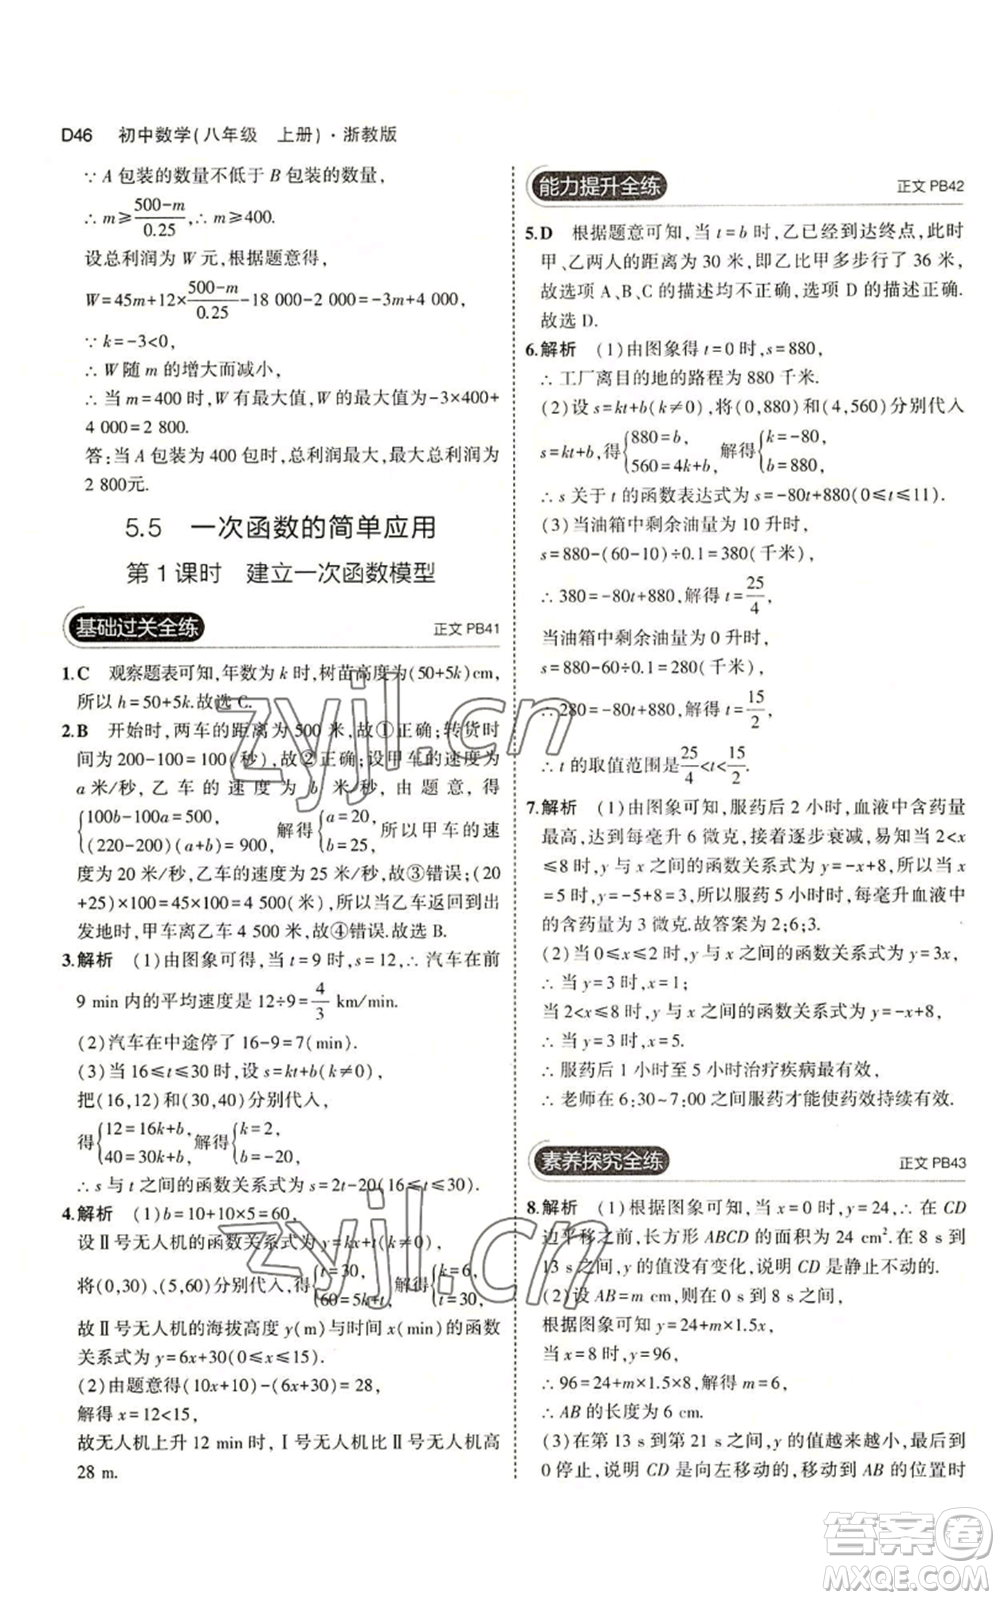 D46 初中数学(八年级 上册)·浙教版
∵A包装的数量不低于B包装的数量,
∴m≥(500-m)/0.25,∴m≥400.
设总利润为W元,根据题意得,
W=45m+12×(500-m)/0.25-18 000-2 000=-3m+4 000,
∵k=-3<0,
∴W随m的增大而减小,
∴当m=400时,W有最大值,W的最大值为-3×400+
4 000=2 800.
答:当A包装为400包时,总利润最大,最大总利润为
2 800元.
5.5 一次函数的简单应用
第1课时 建立一次函数模型
基础过关全练 正文PB41
1.C 观察题表可知,年数为k时,树苗高度为(50+5k)cm,
所以h=50+5k.故选C.
2.B 开始时,两车的距离为500米,故①正确;转货时
间为200-100=100(秒),故②正确;设甲车的速度为
a米/秒,乙车的速度为b米/秒,由题意,得
{100b-100a=500,
(220-200)(a+b)=900, 解得{a=20,
b=25, 所以甲车的速
度为20米/秒,乙车的速度为25米/秒,故③错误;(20
+25)×100=45×100=4 500(米),所以当乙车返回到出
发地时,甲车离乙车4 500米,故④错误.故选B.
3.解析 (1)由图象可得,当t=9时,s=12,∴汽车在前
9 min内的平均速度是12÷9=4/3 km/min.
(2)汽车在中途停了16-9=7(min).
(3)当16≤t≤30时,设s=kt+b(k≠0),
把(16,12)和(30,40)分别代入,
得{12=16k+b,
40=30k+b, 解得{k=2,
b=-20,
∴s与t之间的函数关系式为s=2t-20(16≤t≤30).
4.解析 (1)b=10+10×5=60,
设Ⅱ号无人机的函数关系式为y=kx+t(k≠0),
将(0,30)、(5,60)分别代入,得{t=30,
60=5k+t, 解得{k=6,
t=30,
故Ⅱ号无人机的海拔高度y(m)与时间x(min)的函数
关系式为y=6x+30(0≤x≤15).
(2)由题意得(10x+10)-(6x+30)=28,
解得x=12<15,
故无人机上升12 min时,Ⅰ号无人机比Ⅱ号无人机高
28 m.
能力提升全练 正文PB42
5.D 根据题意可知,当t=b时,乙已经到达终点,此时
甲、乙两人的距离为30米,即乙比甲多步行了36米,
故选项A、B、C的描述均不正确,选项D的描述正确.
故选D.
6.解析 (1)由图象得t=0时,s=880,
∴工厂离目的地的路程为880千米.
(2)设s=kt+b(k≠0),将(0,880)和(4,560)分别代入
s=kt+b,得{880=b,
560=4k+b, 解得{k=-80,
b=880,
∴s关于t的函数表达式为s=-80t+880(0≤t≤11).
(3)当油箱中剩余油量为10升时,
s=880-(60-10)÷0.1=380(千米),
∴380=-80t+880,解得t=25/4,
当油箱中剩余油量为0升时,
s=880-60÷0.1=280(千米),
∴280=-80t+880,解得t=15/2,
∴t的取值范围是25/4<t<15/2.
7.解析 (1)由图象可知,服药后2小时,血液中含药量
最高,达到每毫升6微克,接着逐步衰减,易知当2<x
≤8时,y与x之间的函数关系式为y=-x+8,所以当x
=5时,y=-5+8=3,所以服药5小时时,每毫升血液中
的含药量为3微克.故答案为2;6;3.
(2)当0≤x≤2时,y与x之间的函数关系式为y=3x,
∴当y=3时,x=1,
当2<x≤8时,y与x之间的函数关系式为y=-x+8,
∴当y=3时,x=5.
∴服药后1小时至5小时治疗疾病最有效,
∴老师在6:30~7:00之间服药才能使药效持续有效.
素养探究全练 正文PB43
8.解析 (1)根据图象可知,当x=0时,y=24,∴在CD
边平移之前,长方形ABCD的面积为24 cm².在8 s到
13 s之间,y的值没有变化,说明CD是静止不动的.
(2)设AB=m cm,则在0 s到8 s之间,
根据图象可知y=24+m×1.5x,
当x=8时,y=96,
∴96=24+m×1.5×8,解得m=6,
∴AB的长度为6 cm.
(3)在第13 s到第21 s之间,y的值越来越小,直到
0停止,说明CD是向左移动的,移动到AB的位置时
zyjl.cn
zyjl.cn
答案卷
MXQE.COM